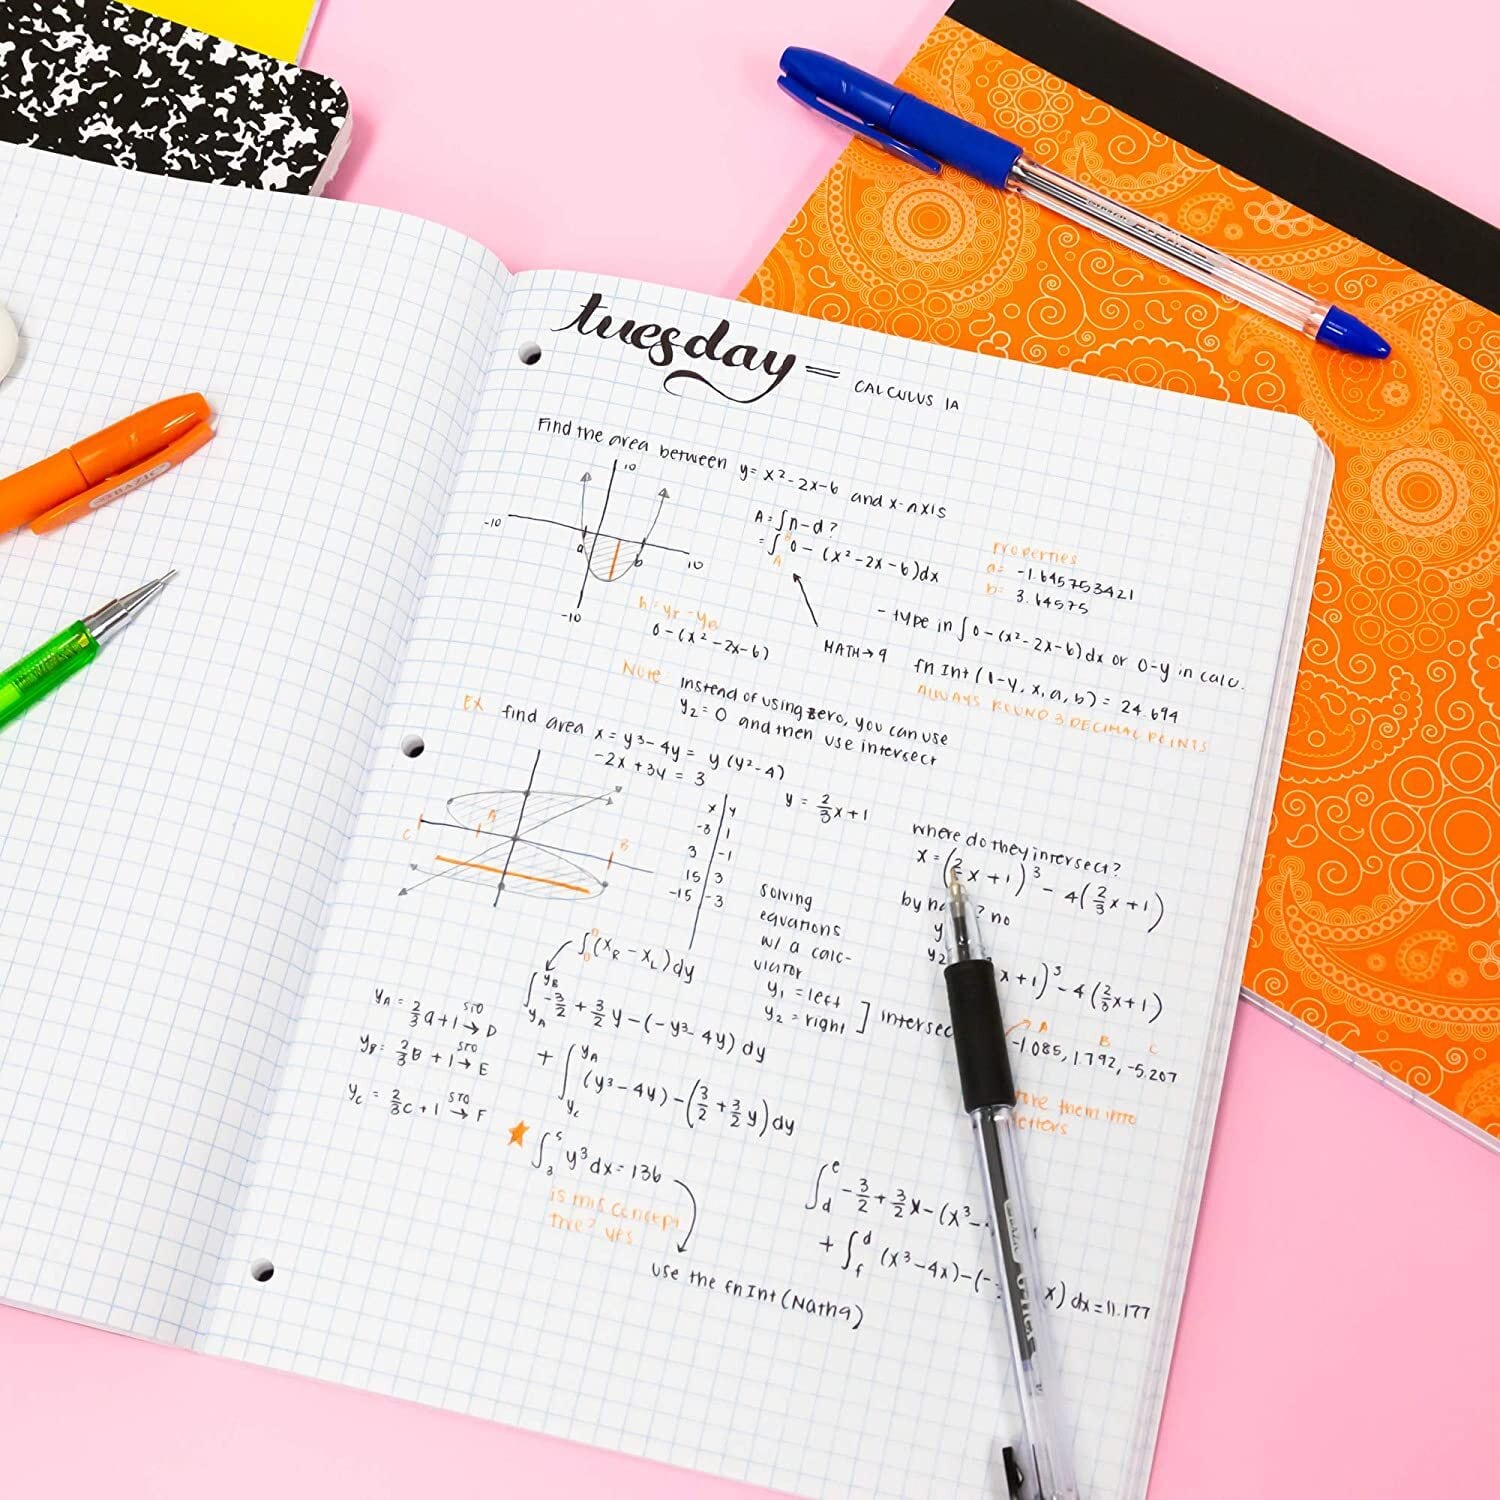 tuesday = CALCULUS 1A
Find the area between y = x² - 2x - 6 and x-axis
10
-10
10
-10
a
b
A = ∫ n - d ?
= ∫ 0 - (x² - 2x - 6) dx
B
A
Properties
a = -1.645753421
b = 3.64575
h = yT - yB
0 - (x² - 2x - 6)
- type in ∫ 0 - (x² - 2x - 6) dx or 0-y in calc.
MATH → 9
fn Int (1-y, x, a, b) = 24.694
ALWAYS ROUND 3 DECIMAL POINTS
Note instead of using zero, you can use
y₂ = 0 and then use intersect
EX find area x = y³ - 4y = y (y² - 4)
-2x + 3y = 3
y = 2/3 x + 1
C
A
B
x y
-3 1
3 -1
15 3
-15 -3
where do they intersect?
x = (2/3 x + 1)³ - 4(2/3 x + 1)
by ? no
y
y₂ x + 1)³ - 4(2/3 x + 1)
A B C
-1.085, 1.792, -5.207
them into
solving
equations
w/ a calc-
ulator
y₁ = left
y₂ = right ] intersec
∫ (xR - xL) dy
∫ yB yA -3/2 + 3/2 y - (-y³ - 4y) dy
+ ∫ yA yC (y³ - 4y) - (3/2 + 3/2 y) dy
yA = 2/3 a + 1 STO → D
yB = 2/3 B + 1 STO → E
yC = 2/3 C + 1 STO → F
∫ 5 3 y³ dx = 136
is this concept
true? yes
use the fn Int (Math9)
∫ e d -3/2 + 3/2 x - (x³ -
+ ∫ d f (x³ - 4x) - (- x) dx = 11.177
BAZIC